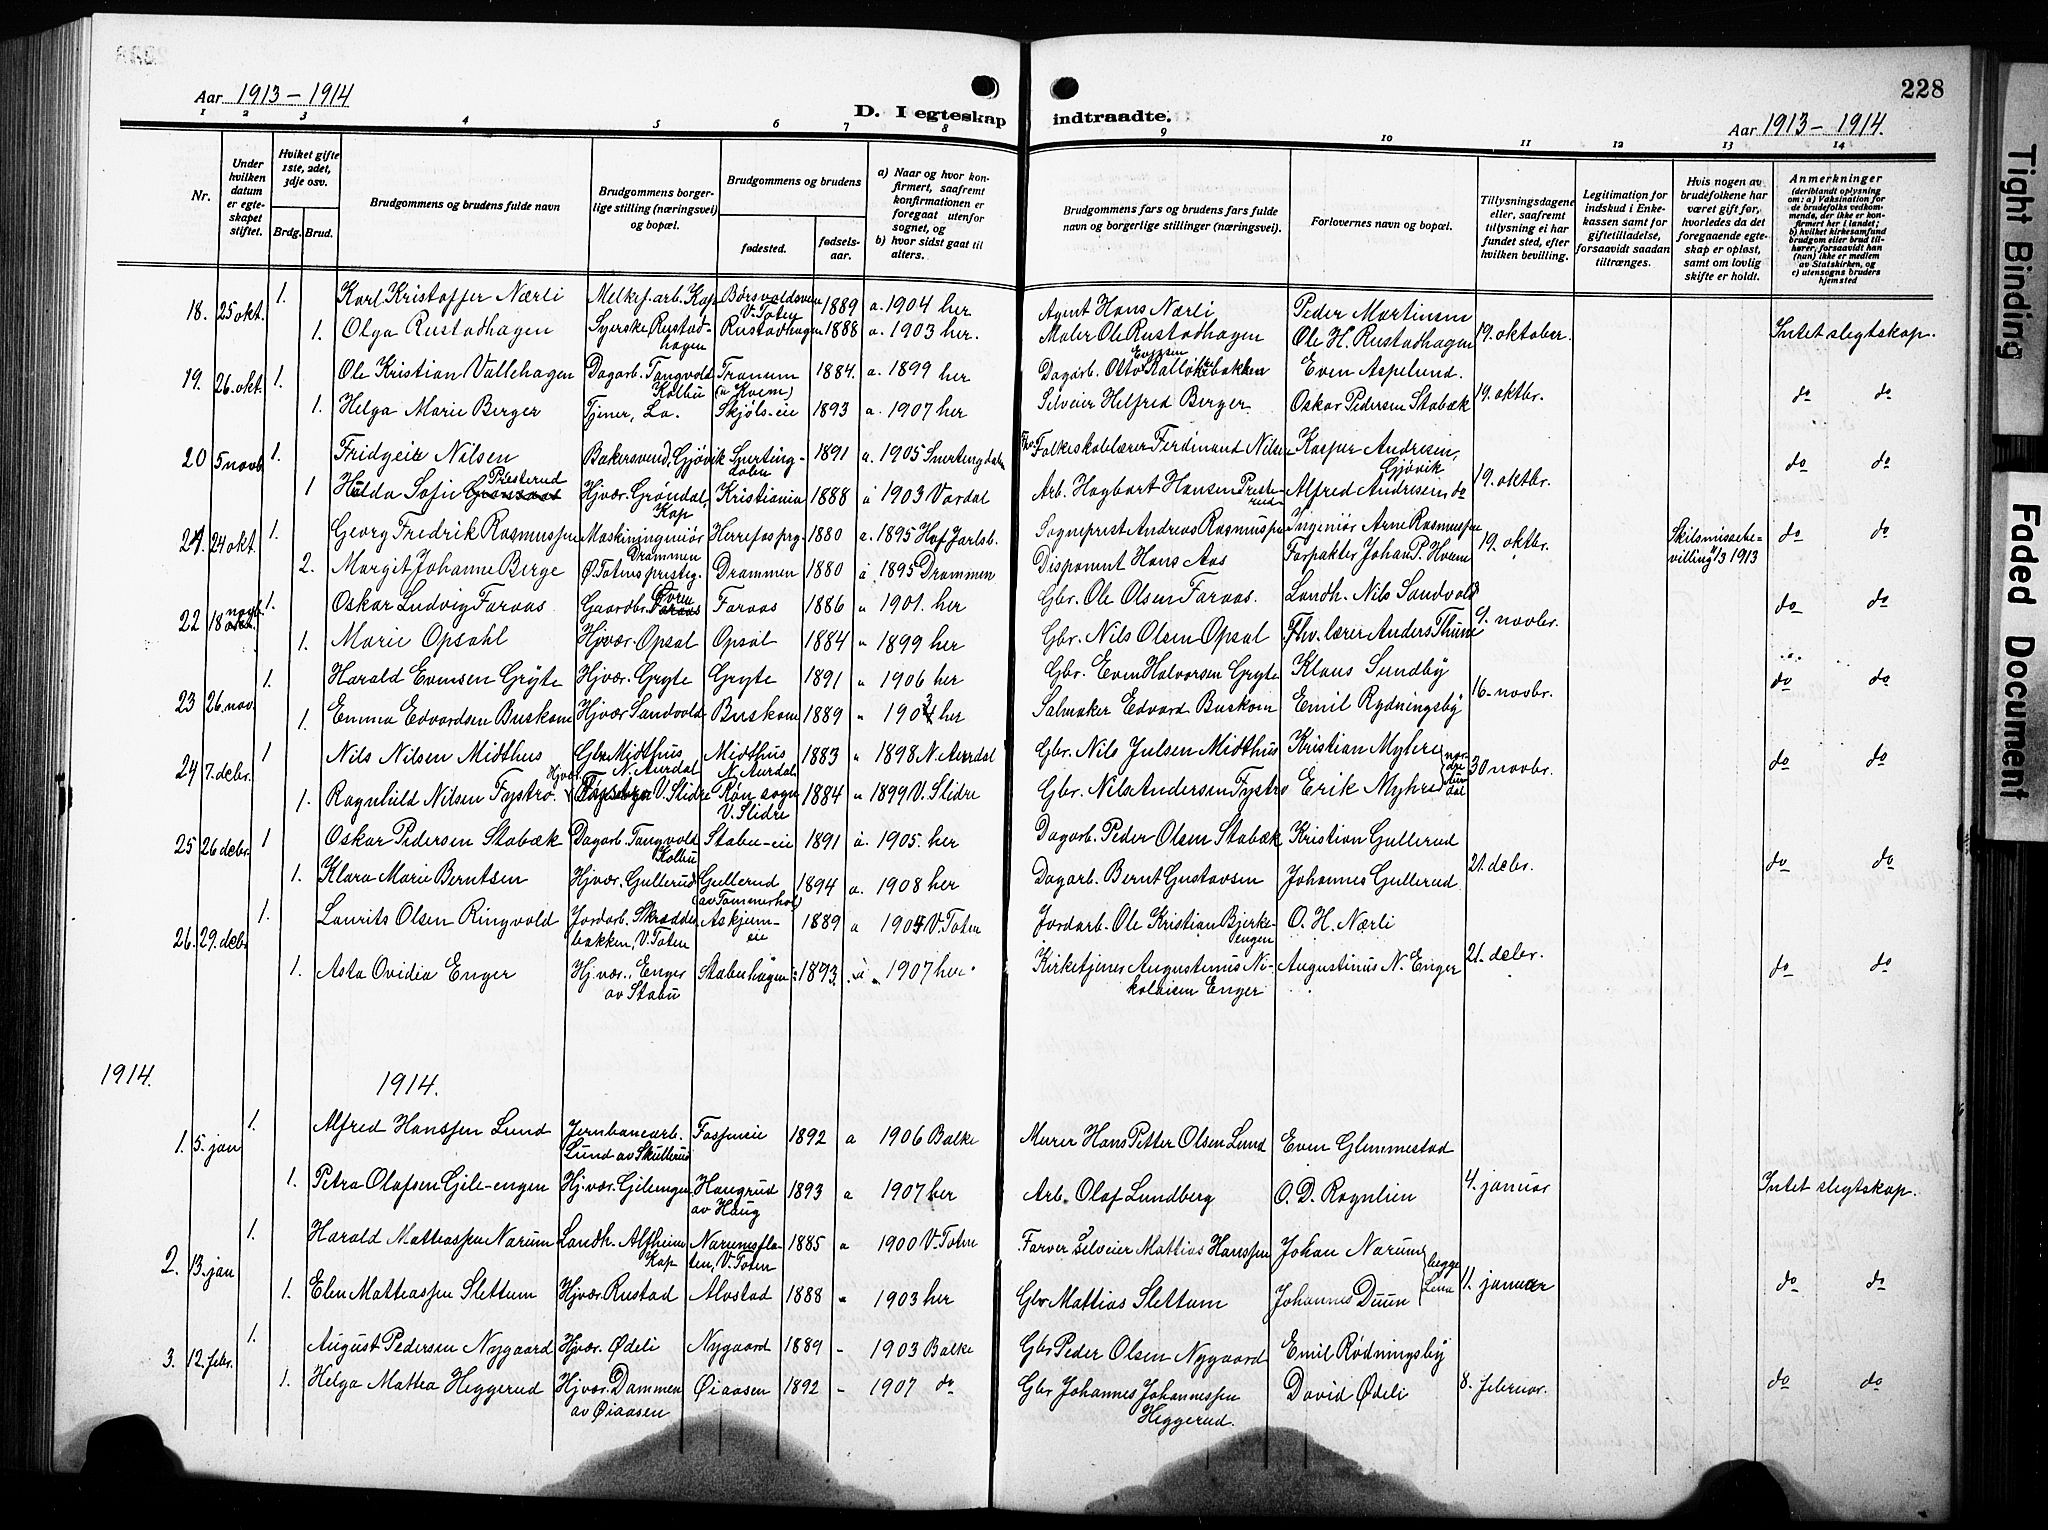 228
Aar 1913 – 1914
D. I egteskap indtraadte.
Aar 1913 – 1914.
1 2 3 4 5 6 7 8 9 10 11 12 13 14
Nr.
Under hvilken datum er egteskapet stiftet.
Hviket gifte 1ste, 2det, 3dje osv.
Brdg. Brud.
Brudgommens og brudens fulde navn
Brudgommens borgerlige stilling (næringsvei) og bopæl.
Brudgommens og brudens
fødested. fødselsaar.
a) Naar og hvor konfirmert, saafremt konfirmationen er foregaat utenfor sognet, og
b) hvor sidst gaat til alters.
Brudgommens fars og brudens fars fulde navn og borgerlige stillinger (næringsvei).
Forlovernes navn og bopæl.
Tillysningsdagene eller, saafremt tillysning ei har fundet sted, efter hvilken bevilling.
Legitimation for indskud i Enkekassen samt for giftetilladelse, forsaavidt saadan tiltrænges.
Hvis nogen av brudefolkene har været gift før, hvorledes da det foregaaende egteskap er opløst, samt om lovlig skifte er holdt.
Anmerkninger
(deriblandt oplysning om: a) Vaksination for de brudefolks vedkommende, der ikke er konfirmert her i landet; b) hvilket kirkesamfund brudgom eller brud tilhører, forsaavidt han (hun) ikke er medlem av Statskirken, og c) utensogns bruders hjemsted
18. 25 okt. 1. Karl Kristoffer Nærli Melkef. arb. Kap Børsvoldsveen V. Toten 1889 a. 1904 her Agent Hans Nærli Peder Martinsen
1. Olga Rustadhagen Syerske Rustadhagen Rustadhagen 1888 a. 1903 her. Maler Ole Rustadhagen Ole H. Rustadhagen 19. oktober. Intet slegtskap.
19. 26. okt. 1. Ole Kristian Vallehagen Dagarb. Tangvold Kolbu Tranum (u Kvem) 1884. a. 1899 her Dagarb. Otto Evensen Even Aspelund.
1. Helga Marie Berger Tjener, Lo. Skjøls-eie 1893 a. 1907 her Selveier Helfred Berger Oskar Pedersen Stabæk 19. oktbr. do do
20 5 novb. 1. Fridgeir Nilsen Bakersvend, Gjøvik Snertingdalen 1891 a. 1905 Snertingdalen Folkeskolelærer Ferdinand Nilsen Kasper Andresen, Gjøvik
1 Hulda Sofie Præsterud Hjvær. Grøndal, Kap Kristiania 1888 a 1903 Vardal Arb. Hagbart Hansen Presterud Alfred Andresen do 19. oktbr. do do
21. 24 okt. 1. Georg Fredrik Rasmussen Maskiningeniør Drammen Herrefos prg 1880 a. 1895 Hof Jarlsb. Sogneprest Andreas Rasmussen Ingeniør Arne Rasmussen
2. Margit Johanne Berge Ø. Totens presteg. Drammen 1880 a. 1895 Drammen Disponent Hans Aas Forpakter Johan P. Hveem 19. oktbr. Skilsmissebevilling 1/3 1913 do do
22 18 novb. 1. Oskar Ludvig Faraas Gaardbr. Faraas 1886 " 1901. her Gbr. Ole Olsen Faraas. Landh. Nils Sandvold
1. Marie Opsahl Hjvær. Opsal Opsal 1884 " 1899 her Gbr. Nils Olsen Opsal Fhv. lærer Anders Thune 9. novbr. do do
23 26. nov. 1. Harald Evensen Gryte Hjvær. Gryte Gryte 1891 " 1906 her Gbr. Even Halvorsen Gryte Klaus Sundby
1. Emma Edvardsen Buskom Hjvær. Sandvold Buskom 1889 " 1903 her Salmaker Edvard Buskom Emil Rydningsby 16. novbr. do do
24 7. debr. 1 Nils Nilsen Midthus Gbr. Midthus N. Aurdal Midthus N. Aurdal 1883 " 1898 N. Aurdal Gbr. Nils Julsen Midthus Kristian Myhre
1. Ragnhild Nilsen Fystro. Hjvær. V. Slidre Røn sogn V. Slidre 1884 " 1899 V. Slidre Gbr. Nils Andersen Fystro Erik Myhre nordre Aurdal 30 novbr. do do
25 26 debr. 1 Oskar Pedersen Stabæk Dagarb. Tangvold Kolbu Stabu-eie 1891 a. 1905. her Dagarb. Peder Olsen Stabæk Kristian Gullerud
1. Klara Marie Berntsen Hjvær. Gullerud Gullerud (av Tømmerhol) 1894 a. 1908 her Dagarb. Bernt Gustavsen Johannes Gullerud 21. debr. do do
26. 29. deb. 1. Laurits Olsen Ringvold Jordarb. Skrædderbakken, V. Toten Askjemeie 1889 a 1904 V. Toten Jordarb. Ole Kristian Bjerkeengen O. H. Nærli
1. Asta Ovidia Enger Hjvær., Enger av Stabu Stabuhagen 1893. a. 1907 her Kirketjener Augustinus Nikolaisen Enger Augustinus N. Enger 21. debr. do do
1914. 1914.
1. 5. jan 1. Alfred Hanssen Lund Jernbanearb. Lund av Skullerud Fossmeie 1892 a 1906 Balke Murer Hans Petter Olsen Lund Even Glemmestad
1. Petra Olafsen Gile-engen Hj. vær. Gileengen Haugrud av Haug 1893 a 1907 her Arb. Olaf Lundberg O. D. Rognlien 4. januar Intet slegtskap.
2. 13. jan 1. Harald Matteassen Narum Landh. Alfheim Kap Narumsflaten, V. Toten 1885 a 1900 V. Toten Farver selveier Mattias Hanssen Johan Narum
1. Elen Matteassen Slettum Hjvær. Rustad Alvstad 1888 " 1903 her Gbr Mattias Slettum Johannes Duun begge Lena 11. januar do do
3. 12. febr. 1. August Pedersen Nygaard Hjvær. Ødeli Nygaard 1889 – 1903 Balke Gbr Peder Olsen Nygaard Emil Rødningsby
1. Helga Mattea Heggerud Hjvær. Dammen av Øiaasen Øiaasen 1892 – 1907 do Gbr Johannes Johannessen Heggerud. David Ødeli 8. februar. do do
Tight Binding
Faded Document